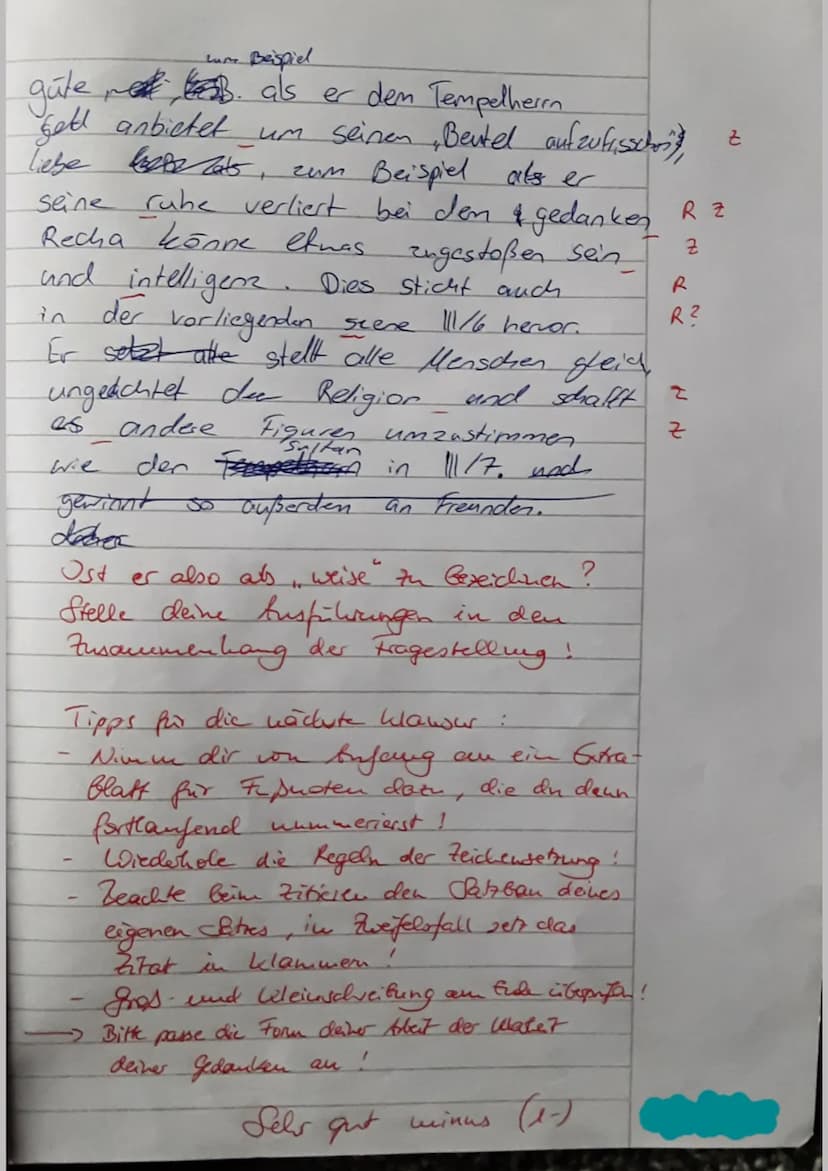 zum Beispiel
güte, als er dem Tempelherrn
Geld anbietet um seinen "Beutel aufzufrischen", Z
liebe, zum Beispiel als er
seine ruhe verliert bei dem gedanken R Z
Recha könne etwas zugestoßen sein Z
und intelligenz. Dies sticht auch R
in der vorliegenden scene III/6 hervor. R?
Er setzt alle stellt alle Menschen gleich
ungeachtet der Religion und schafft Z
es andere Figuren umzustimmen Z
Sultan
wie den in III/7. und
gewinnt so außerdem an Freunden.
daher
Ist er also als „weise“ zu bezeichnen?
Stelle deine Ausführungen in den
Zusammenhang der Fragestellung!
Tipps für die nächste Klausur:
- Nimm dir von Anfang an ein Extra-
Blatt für Fußnoten dazu, die du dann
fortlaufend nummerierst!
- Wiederhole die Regeln der Zeichensetzung!
- Beachte beim Zitieren den Satzbau deines
eigenen Satzes, im Zweifelsfall setz das
Zitat in Klammern!
- Groß- und Kleinschreibung am Ende überprüfen!
→ Bitte passe die Form deiner Arbeit der Klarheit
deiner Gedanken an!
Sehr gut minus (1-)